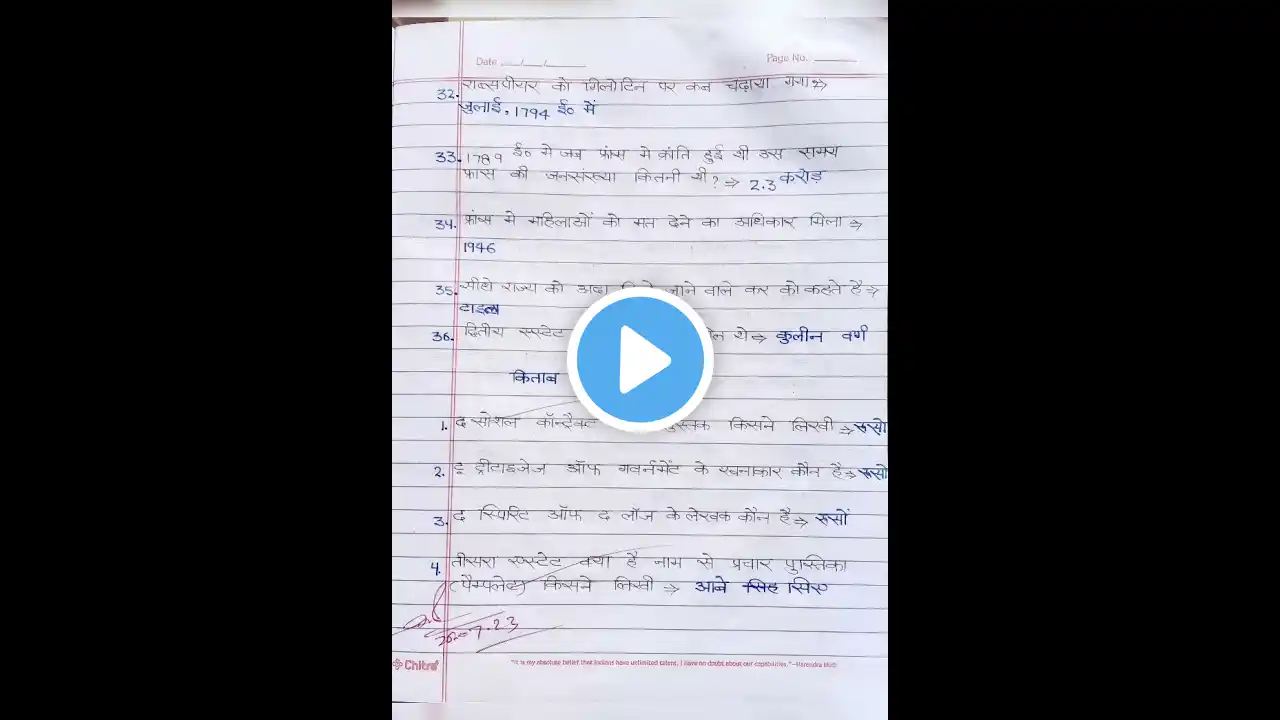 Date ___/___/___
Page No. ______
32. राब्सपीयर को गिलोटिन पर कब चढ़ाया गया?⇒
जुलाई, 1794 ई० में
33. 1789 ई० मे जब फ्रांस मे क्रांति हुई थी उस समय
फ्रांस की जनसंख्या कितनी थी? ⇒ 2.3 करोड़
34. फ्रांस मे महिलाओं को मत देने का अधिकार मिला ⇒
1946
35. सीधे राज्य को अदा जाने वाले कर को कहते है ⇒
टाइल
36. द्वितीय एस्टेट थे ⇒ कुलीन वर्ग
किताब
1. द सोशल कॉन्ट्रैक्ट पुस्तक किसने लिखी ⇒ रूसो
2. टू ट्रीटाइजेज ऑफ गवर्नमेंट के रचनाकार कौन है ⇒ रूसो
3. द स्पिरिट ऑफ द लॉज के लेखक कौन है ⇒ रूसों
4. तीसरा एस्टेट क्या है नाम से प्रचार पुस्तिका
(पैम्फलेट) किसने लिखी ⇒ आबे सिए
7.23
Chitra
"It is my absolute belief that Indians have unlimited talent. I have no doubt about our capabilities." -Narendra Modi